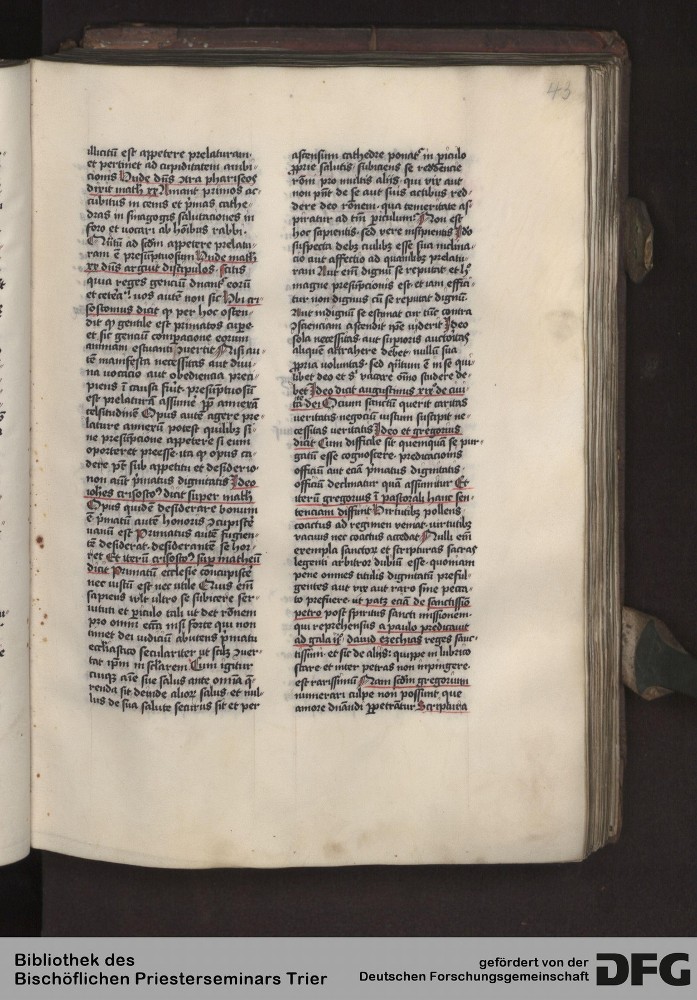 43
illicitū est appetere prelaturam·
et pertinet ad cupiditatem ambi-
cionis Unde dñs ꝯtra phariseos
dixit math xx Amant primos ac-
cubitus in cenis et pͥmas cathe-
dras in sinagogis salutaciones in
foro et vocari ab hōibus rabbi·
ad scd̄m appetere prelatu-
ram ē presūptuosum Unde math
xx dūs arguit discipulos· scitis
quia reges genciū dn̄ant᷑ eorū
et cetera· vos autē non sic Ubi cri-
sostomus dicit ꝙ per hoc osten-
dit ꝙ gentile est primatos cupe-
et sic genciū comꝑacione eorum
animam estuanti ꝯvertit Nisi au-
tē manifesta necessitas aut diui-
na vocacio aut obediencia preci-
piens ī causa fūit· presūptuosū
est prelaturā assume ꝓp̄ annexā
celsitudinē Opus autē agere pre-
lature annexū potest quilibꝫ si-
ne presūpcione appetere si eum
oporteret preesse· ita ꝙ opus ca-
dere pt̄ sub appetitu et desiderio
non autē pͥmatus dignitatis Ideo
ioh̄es crisostoꝰ dicit super math
Opus quidē desiderare bonum
ē pͥmatū autē honoris ꝯcupiscē
vanū est Primatus autē fugien-
tē desiderat· desiderantē se hor-
ret Et iterū crisostoꝰ suꝑ matheū
dicit Primatū ecclesie concupisce
nec iustū est nec utile Quis em̄
sapiens vult ultro se subicere ser-
uituti et ꝑiculo tali ut det rōnem
pro omni ecc̄a nisi forte qui non
timet dei iudiciū abutens pͥmatu
ecclesiastico seculariter ut scilꝫ ꝯuer-
tat ip̄m in sc̄larem Cum igitur
cuiqꝫ aīe sue salus ante omīa q̄-
renda sit deinde alioꝝ salus et nul-
lus de sua salute securus sit et per
ascensum cathedre ponat᷑ in ꝑiculo
ꝓprie salutis· subiciens se reddēcie
rōm̄ pro multis aliis· qui vix aut
non pn̄t de se aut suis actibus red-
dere deo rōnem· qua temeritate as-
piratur ad tm̄ ꝑiculum· Non est
hoc sapientis· sed vere insipientis Ideo
suspecta debꝫ cuilibꝫ esse sua inclina-
cio aut affectio ad quamlibꝫ prelatu-
ram Aut em̄ dignū se reputat et hͦ
magne presūpcionis est· et iam effici-
tur non dignus cū se reputat dignū·
Aut indignū se estimat cur tūc contra
ꝯscienciam ascendit ip̄e viderit Ideo
sola necessitas aut supioris auctoritas
aliquē attrahere debet· nullū sua
ꝓpria voluntas· sed ꝙtum ē in se qui-
libet deo et sͥ vacare om̄io studere de-
bet Ideo dicit augustinus xix de ciui-
tāͤ dei Ocium sanctū querit caritas
veritatis· negociū iustum suscipit ne-
cessitas veritatis Ideo et gregorius
dicit Cum difficile sit quemquā se pur-
gatū esse cognoscere· predicacionis
officiū aut eciā pͥmatus dignitatis
officiū declinatur quā assumitur Et
iterū gregorius ī pastorali hanc sen-
tenciam diffinit Virtutibꝫ pollens
coactus ad regimen veniat· virtutibꝫ
vacuus nec coactus accedat Nulli em̄
exempla sanctoꝝ et scripturas sacras
legenti arbitror dubiū esse· quoniam
pene omnes titulis dignitatū preful-
gentes aut vix aut raro sine pecca-
to prefuere· ut patꝫ eciā de sanctissīo
petro post spiritus sancti missionem
qui reprehensus a paulo predicauit
ad gala ijͦ dauid ezechias reges sanc-
tissimi· et sic de alijs· quippe in lubrico
stare et inter petras non inpingere·
est rarissimū Nam scd̄m gregorium
numerari culpe non possunt· que
amore dn̄andi ꝑpetrātur Scriptura
Bibliothek des
Bischöflichen Priesterseminars Trier
gefördert von der
Deutschen Forschungsgemeinschaft
DFG